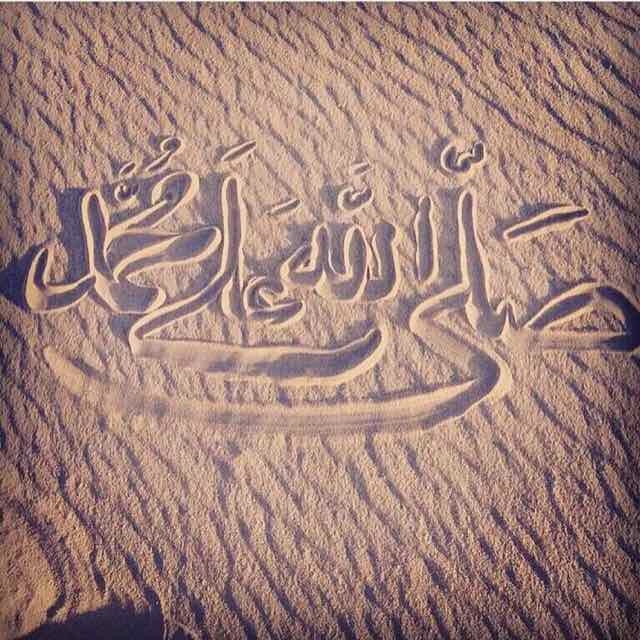 صَلَّى اللَّه عَلَى مُحَمَّد